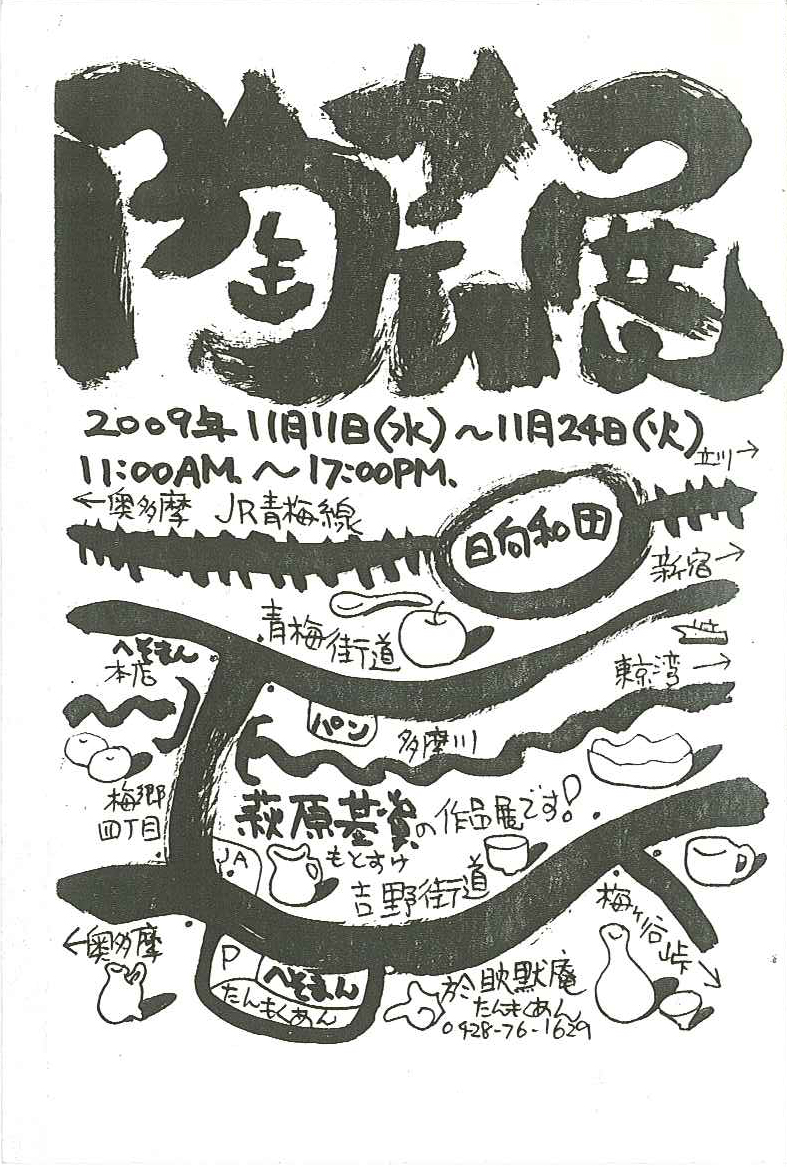 陶芸展
2009年11月11日(水)～11月24日(火)
11:00AM.～17:00PM.
立川→
←奥多摩 JR青梅線
日向和田
新宿→
青梅街道
へそまん
本店
東京湾→
パン
多摩川
梅郷
四丁目
萩原基資の作品展です!
もとすけ
JA
吉野街道
梅ヶ谷峠
←奥多摩
P
へそまん
たんもくあん
於 黙庵
たんもくあん
0428-76-1629